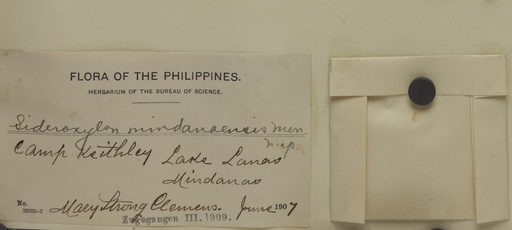 FLORA OF THE PHILIPPINES.
HERBARIUM OF THE BUREAU OF SCIENCE.
Sideroxylon mindanaensis Merr.
n. sp.
Camp Keithley Lake Lanao
Mindanao
No.
Mary Strong Clemens. June 1907
Zugegangen III. 1909.